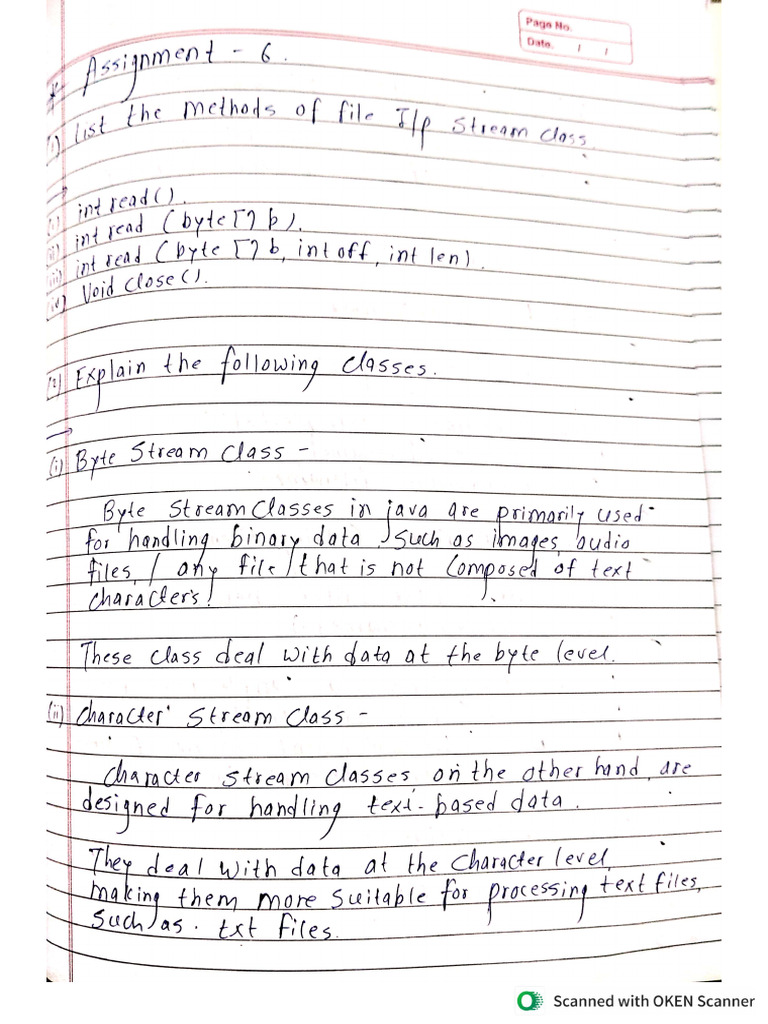 Page No.
Date. / /
* Assignment - 6.
(1) List the methods of file I/p Stream class.
→
(i) int read().
(ii) int read (byte[] b).
(iii) int read (byte [] b, int off, int len).
(iv) Void close().
(2) Explain the following classes.
→
(i) Byte Stream Class -
Byte Stream Classes in java are primarily used
for handling binary data, such as images, audio
files, / any file that is not composed of text
characters.
These class deal with data at the byte level.
(ii) Character Stream Class -
Character Stream Classes, on the other hand, are
designed for handling text-based data.
They deal with data at the Character level,
making them more suitable for processing text files,
such as .txt files.
Scanned with OKEN Scanner